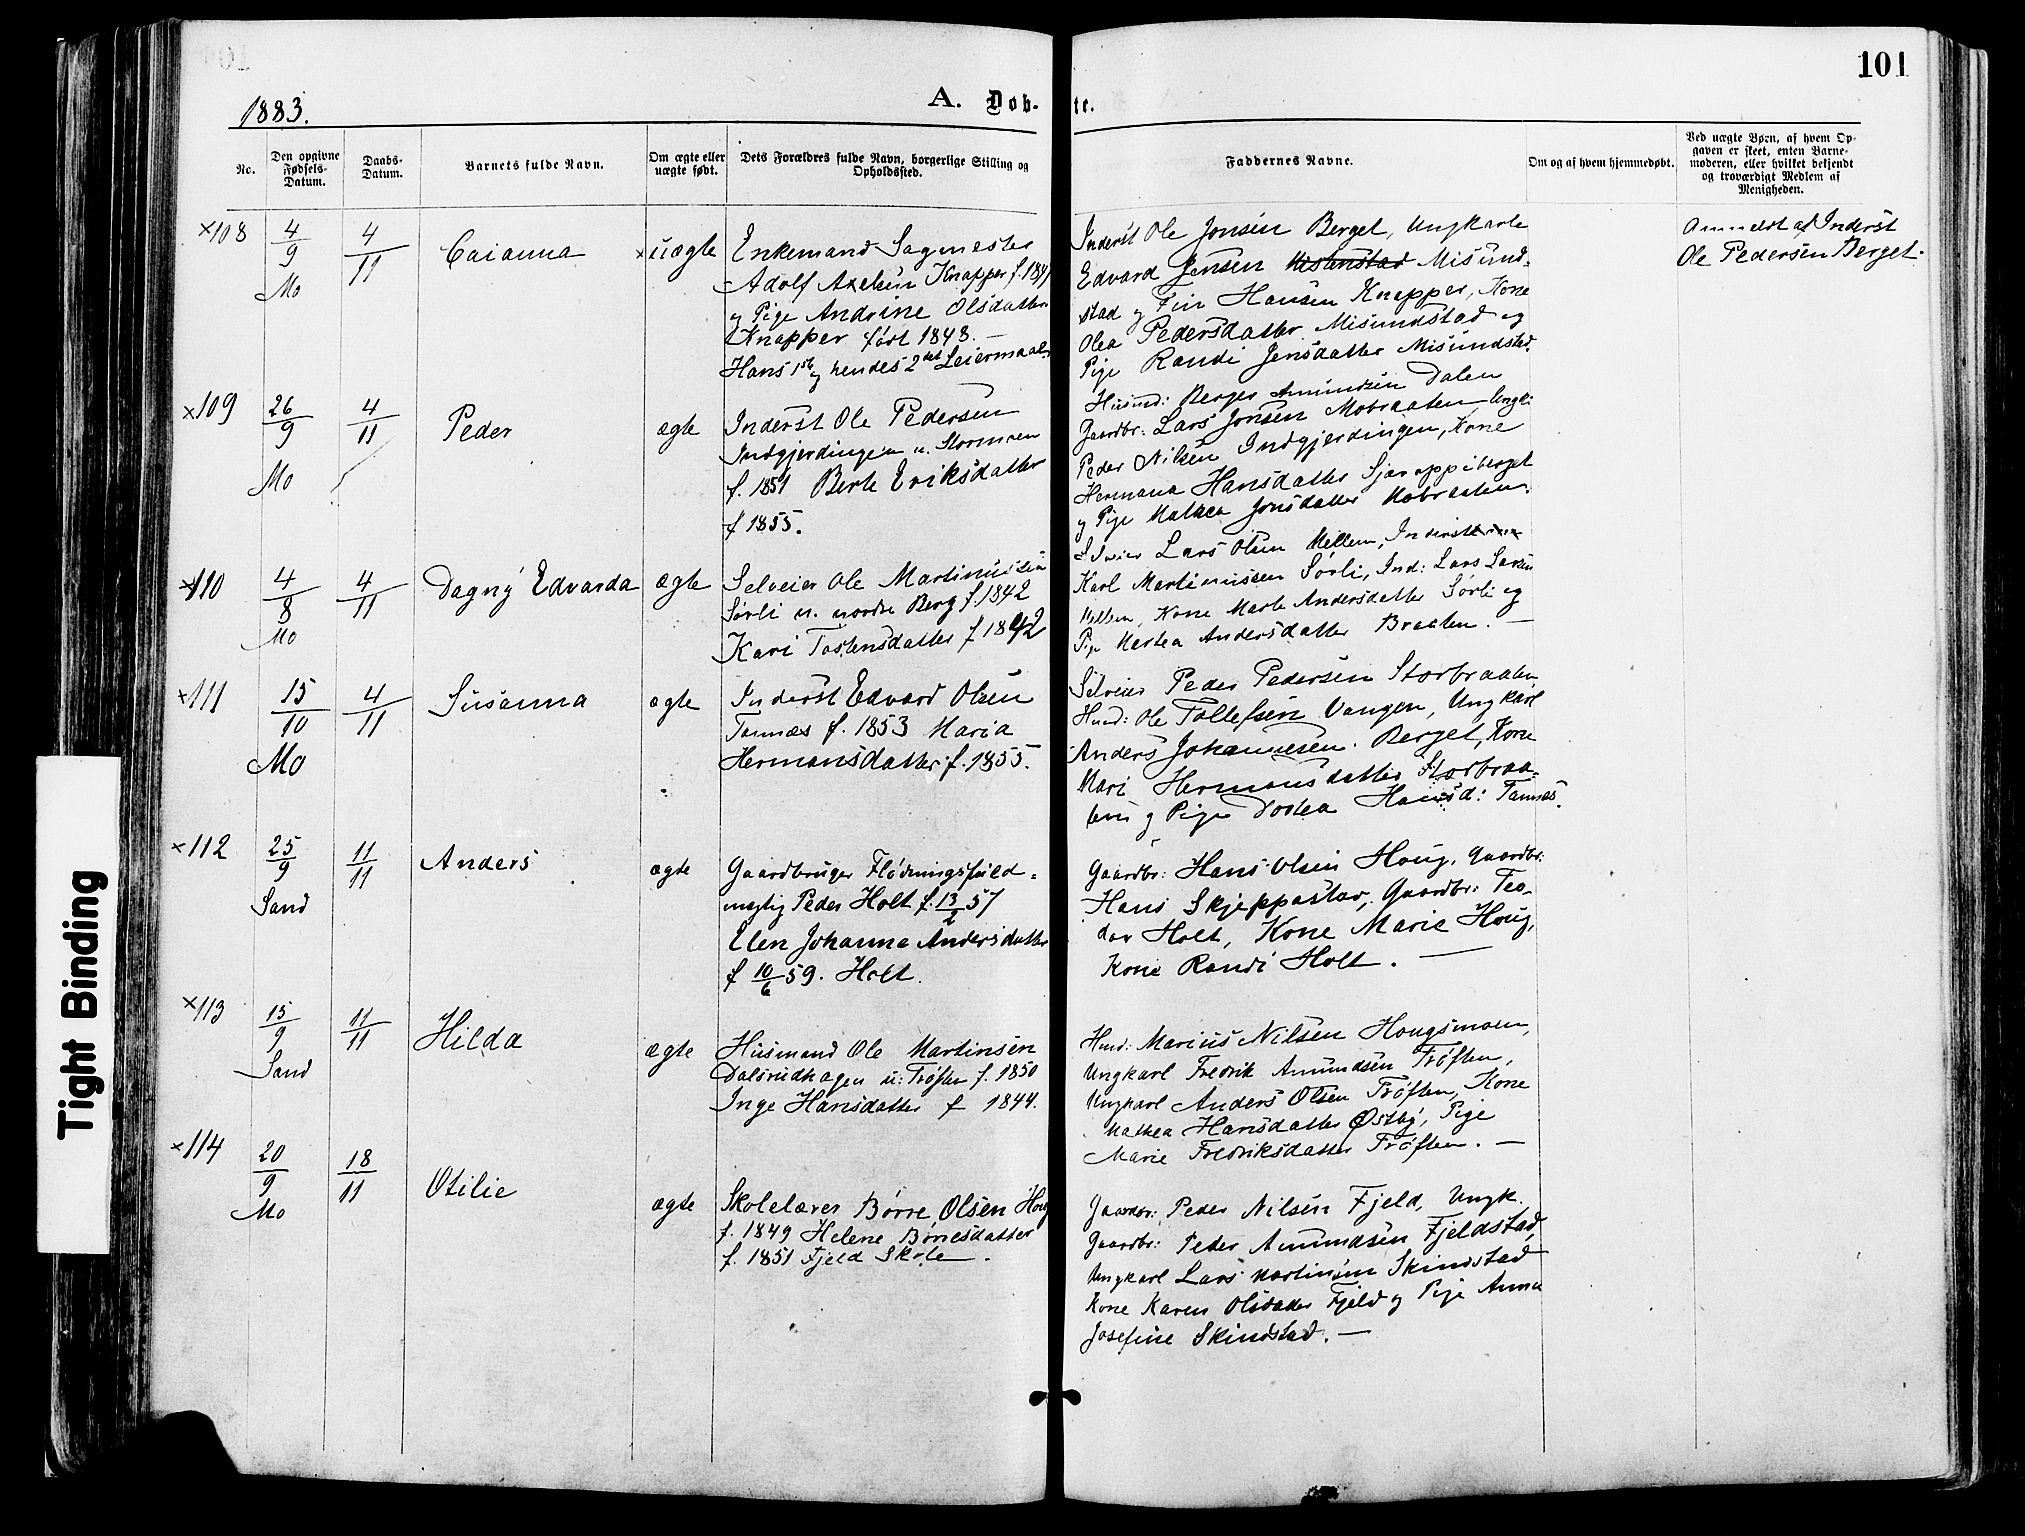 101
1883.
A. Døb-
te.
No.
Den opgivne
Fødsels-
Datum.
Daabs-
Datum.
Barnets fulde Navn.
Om ægte eller
uægte født.
Dets Forældres fulde Navn, borgerlige Stilling og
Opholdssted.
Faddernes Navne.
Om og af hvem hjemmedøbt.
Ved uægte Børn, af hvem Op-
gaven er skeet, enten Barne-
moderen, eller hvilket bekjendt
og troværdigt Medlem af
Menigheden.
×108
4/9
Mo
4/11
Caianna
× uægte
Enkemand Sagmester
Adolf Axelsen Knapper f. 1841
og Pige Andrine Olsdatter
Knapper født 1843. —
Hans 1ste og hendes 2det Leiermaal.
Inderst Ole Jonsen Berget, Ungkarle
Edvard Jensen Misund-
stad og Hansen Knapper, Kone
Olea Pedersdatter Misundstad og
Pige Randi Jensdatter Misundstad.
Anmeldt af Inderst
Ole Pedersen Berget.
×109
26/9
Mo
4/11
Peder
ægte
Inderst Ole Pedersen
Indgjerdingen u. Stormoen
f. 1851 Berte Eriksdatter
f 1855.
Husmd: Berger Amundsen Dalen
Gaardbr: Lars Jonsen Mobraaten, Ungk:
Peder Nilsen Indgjerdingen, Kone
Hermana Hansdatter
og Pige Mathea Jonsdatter Mobraaten.
×110
4/8
Mo
4/11
Dagny Edvarda
ægte
Selveier Ole Martinussen
Sørli u. nordre Berg f. 1842
Kari Tostensdatter f 1842
Selveier Lars Olsen Mellem, Inderst
Karl Martinussen Sørli, Ind: Lars Larsen
Mellem, Kone Marte Andersdatter Sørli og
Pige Martea Andersdatter Braaten. —
×111
15/10
Mo
4/11
Susanna
ægte
Inderst Edvard Olsen
Tannæs f. 1853 Maria
Hermansdatter f. 1855.
Selveier Peder Pedersen Storbraaten,
Husd: Ole Tollefsen Vangen, Ungkarl
Anders Johannesen Berget, Kone
Mari Hermansdatter Storbraa-
ten og Pige Dortea Hansd: Tannæs.
×112
25/9
Sand
11/11
Anders
ægte
Gaardbruger Flødningsfuld-
mægtig Peder Holt f. 13/2 57
Elen Johanne Andersdatter
f 10/6 59. Holt.
Gaardbr: Hans Olsen Houg, Gaardbr:
Hans Skjeppastad, Gaardbr: Teo-
dor Holt, Kone Marie Houg,
Kone Randi Holt. —
×113
15/9
Sand
11/11
Hilda
ægte
Husmand Ole Martinsen
Dalsrudhagen u: Trøften f. 1850
Inge Hansdatter f 1844.
Husd: Marius Nilsen Hougsmoen,
Ungkarl Fredrik Amundsen Trøften,
Ungkarl Anders Olsen Trøften, Kone
Mathea Hansdatter Østby, Pige
Marie Fredriksdatter Trøften. —
×114
20/9
Mo
18/11
Otilie
ægte
Skolelærer Børre Olsen Houg
f. 1849 Helene Børresdatter
f. 1851 Fjeld Skole.
Gaardbr: Peder Nilsen Fjeld, Ungk.
Gaardbr: Peder Amundsen Fjeldstad,
Ungkarl Lars Martinsen Skindstad
Kone Karen Olsdatter Fjeld og Pige Anna
Josefine Skindstad. —
Tight Binding